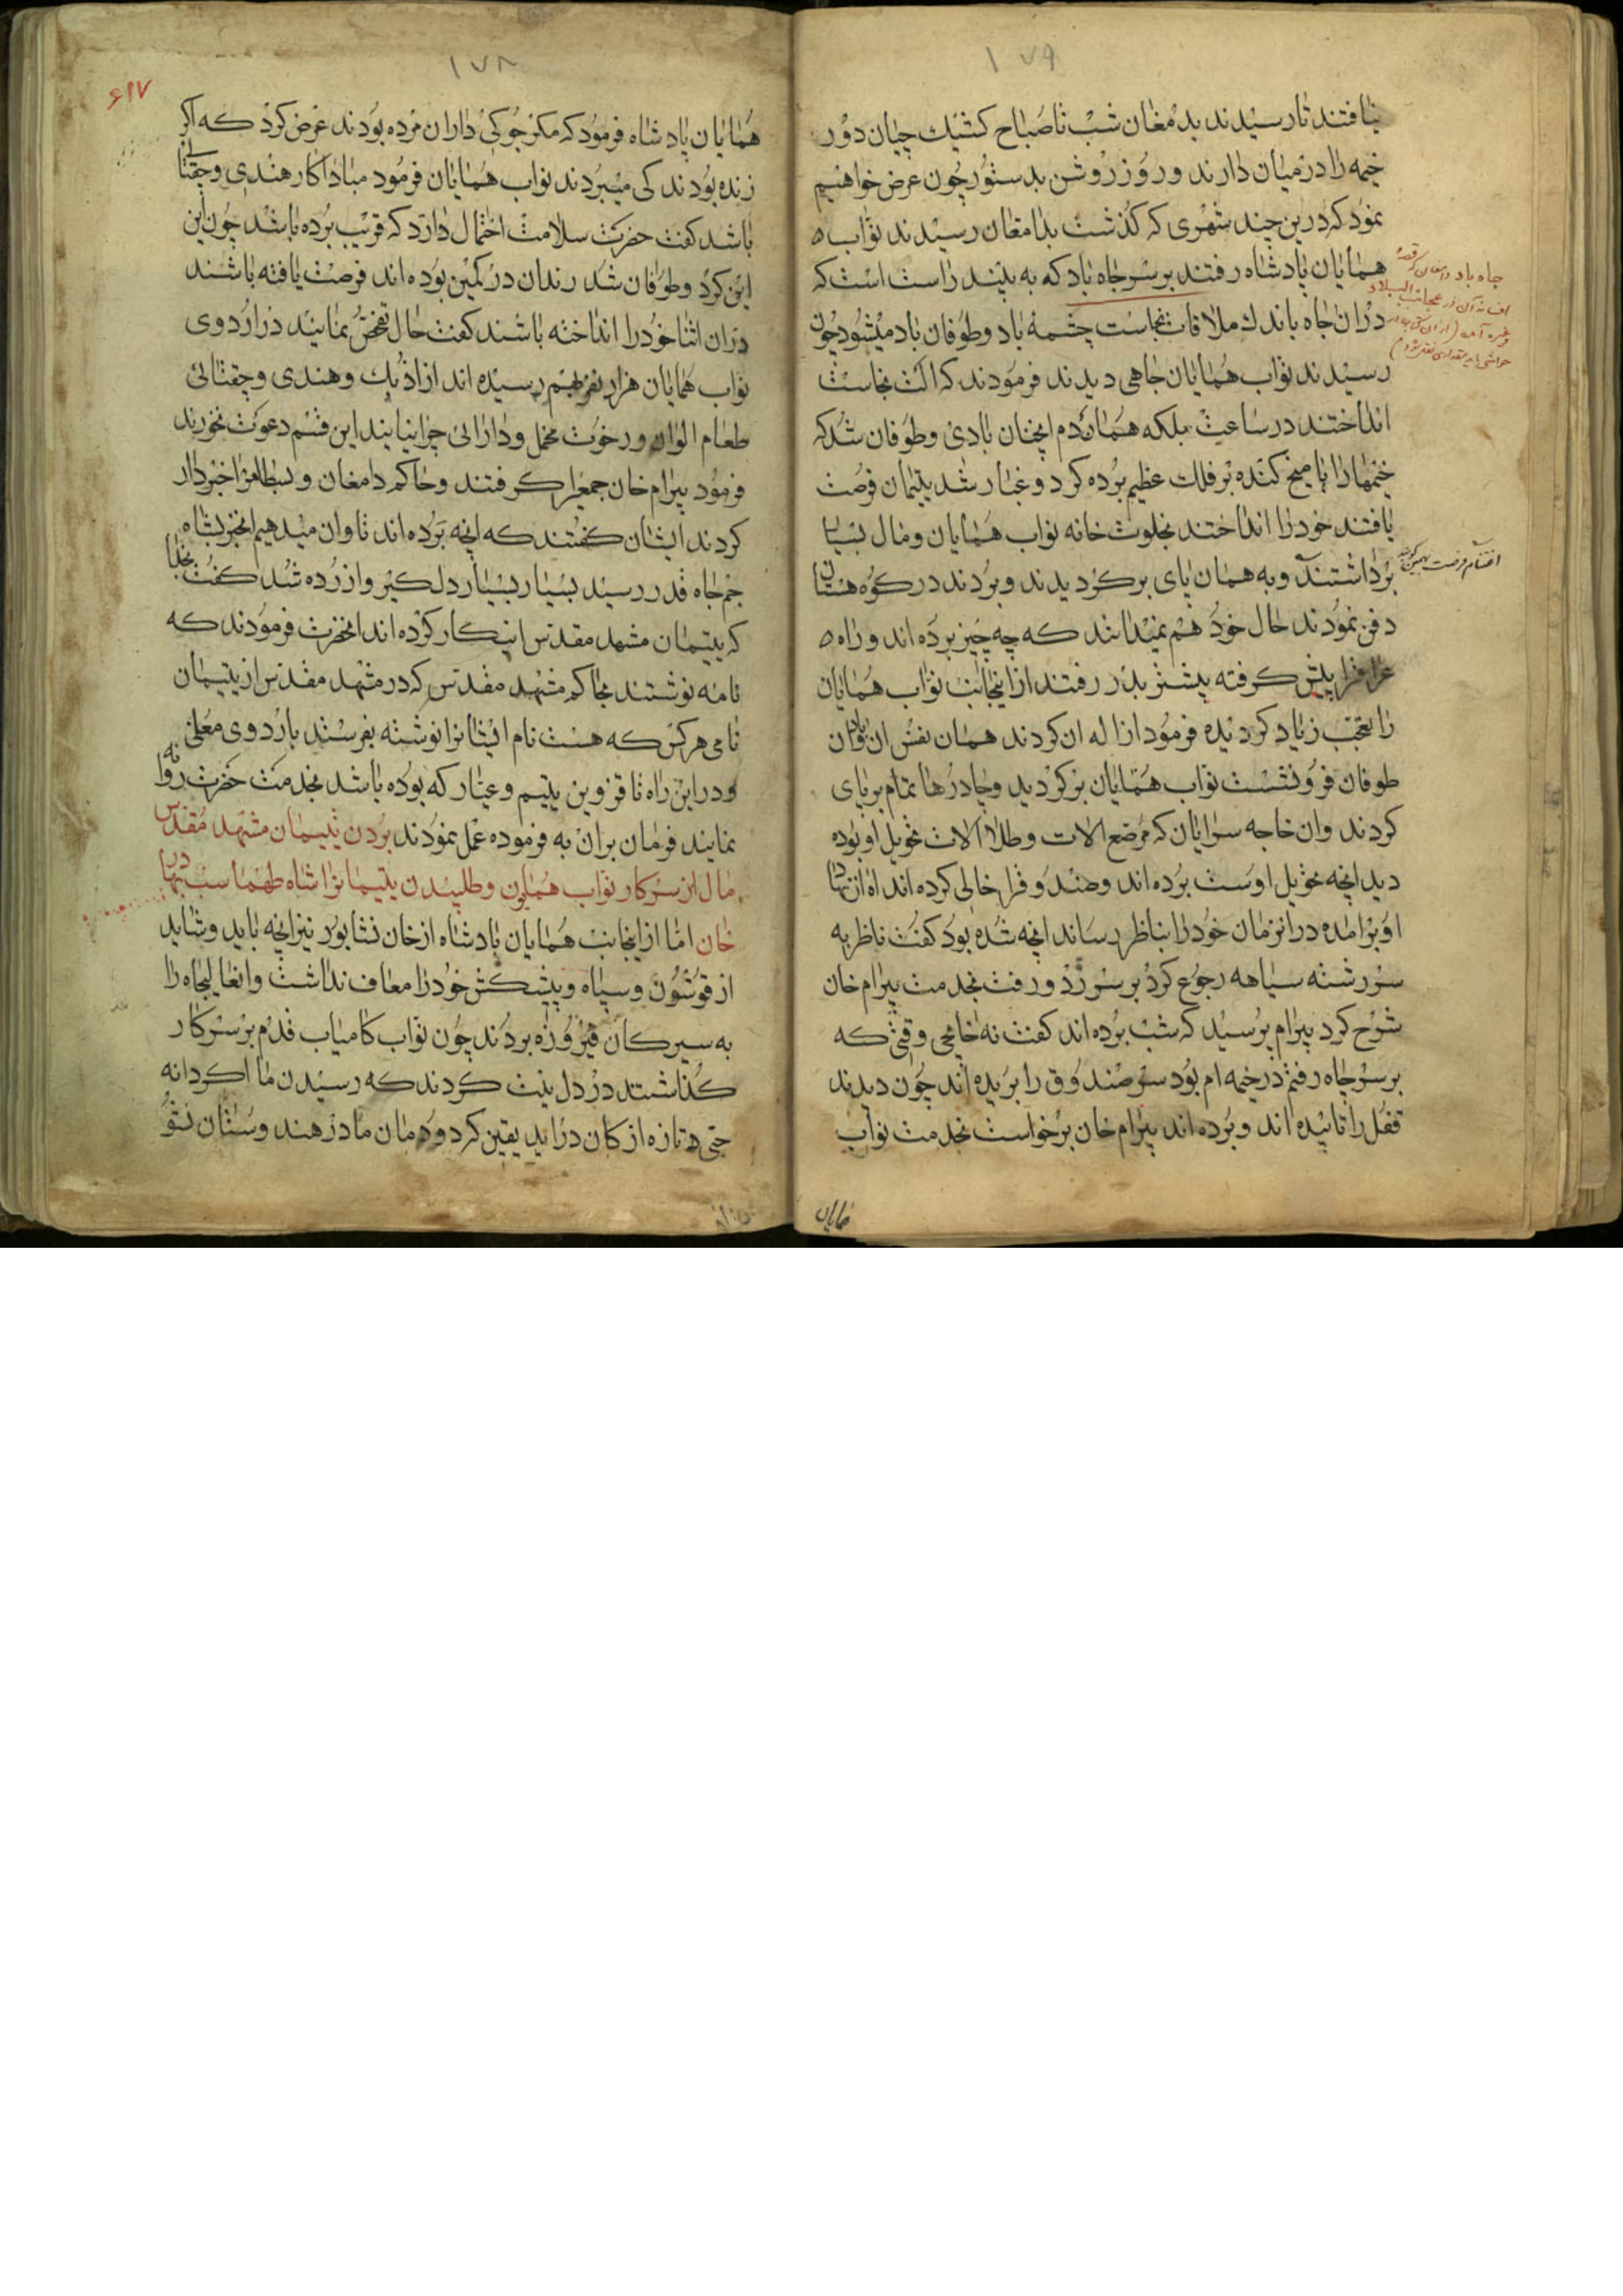 ۱۷۹
نیافتند تا رسیدند بدمغان شب تا صباح کشیک چیان دور
خیمه را در میان دارند و روز روشن بدستور چون عرض خواهیم
نمود که درین چند شهری که گذشت بدامغان رسیدند نواب
همایان پادشاه رفتند بر سر چاه باد که به بینند راست است که
دران چاه باندك ملاقات نجاست چشمه باد و طوفان باد میشود چون
رسیدند نواب همایان چاهی دیدند فرمودند که نجاست
انداختند در ساعت بلکه همان دم انچنان بادی و طوفان شد که
خیمها را با میخ کنده بر فلك عظیم برده کرد و غبار شد یتیمان فرصت
یافتند خود را انداختند بخلوت خانه نواب همایان و مال بسیار
برداشتند و به همان پای برگردیدند و بردند در کوه هستان
دفن نمودند حال خود هم نمیدانند که چه چیز برده اند و راه
پیش کرفته پیشتر بدر رفتند از اینجانب نواب همایان
را تعجب زیاد کردیده فرمود ازاله ان کردند همان نفس ان باد و ان
طوفان فرو نشست نواب همایان برکردید و چادرها تمام بر پای
کردند وان خاجه سرایان که مرضع الات و طلا الات تحویل او بوده
دید انچه تحویل اوست برده اند و صندوقرا خالی کرده اند اه از نهاد
او برامده در انزمان خود را بناظر رساند انچه شده بود کفت ناظر به
سررشته سیاهه رجوع کرد بر سر زد و رفت بخدمت بیرام خان
شرح کرد بیرام پرسید که شب برده اند کفت نه خانجی وقتی که
بر سر چاه رفتم در خیمه ام بود سر صندوق را بریده اند چون دیدند
قفل را تابیده اند و برده اند بیرام خان برخواست بخدمت نواب
همایان
چاه باد
۱۷۸
۶۱۷
همایان پادشاه فرمود که مکر چوکی داران مرده بودند عرض کرد که اکر
زنده بودند کی میبردند نواب همایان فرمود مبادا کار هندی و چقتای
باشد کفت حضرت سلامت احتمال دارد که قریب برده باشد چون این
این کرد و طوفان شد رندان در کمین بوده اند فرصت یافته باشند
دران اثنا خود را انداخته باشند کفت حال تفحص نمایند در اردوی
نواب همایان هزار نفر بهم رسیده اند از اذبك و هندی و چقتائی
طعام الوان و رخوت مخمل و دارائی چرا نیابند این قسم دعوت نخورند
فرمود بیرام خان جمعیرا کرفتند و حاکم دامغان و بسطامرا خبردار
کردند ایشان کفتند که انچه برده اند تاوان میدهیم انخبر بشاه
جم جاه قدر رسید بسیار بسیار دلکیر و ازرده شد کفت بخدا
که یتیمان مشهد مقدس اینکار کرده اند انحضرت فرمودند که
نامه نوشتند بحاکم مشهد مقدس که در مشهد مقدس از یتیمان
نامی هرکس که هست نام ایشانرا نوشته بفرستند باردوی معلی
و دراین راه تا قزوین یتیم و عیار که بوده باشد بخدمت حضرت روانه
نمایند فرمان بران به فرموده عمل نمودند بردن یتیمان مشهد مقدس
مال از سرکار نواب همایون و طلبیدن یتیمانرا شاه طهماسب
خان اما ازاینجانب همایان پادشاه از خان نشابور نیز انچه باید و شاید
از قوشون و سپاه و پیشکش خود را معاف نداشت وانعالیجاه را
به سیر کان فیروزه بردند چون نواب کامیاب قدم بر سر کار
کذاشتند در دل نیت کردند که رسیدن ما اکر دانه
تازه از کان دراید یقین کرد ودمان ما در هند وستان نشو